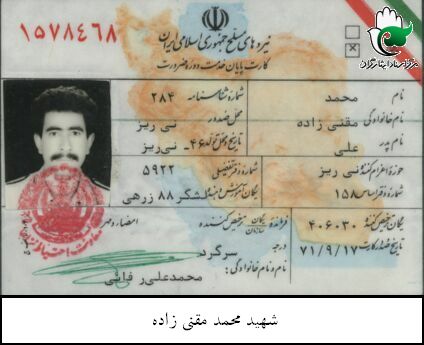 نیروهای مسلح جمهوری اسلامی ایران
کارت پایان خدمت دوره ضرورت
۱۵۷۸۴۶۸
نام محمد شماره شناسنامه ۲۸۴
نام خانوادگی مقنی زاده محل صدور نی ریز
نام پدر علی تاریخ و محل تولد ۴۶- نی‌ریز
حوزه اعزام کننده نی ریز شماره دفتر تفصیلی ۵۹۲۲
شماره دفتر اساس ۱۵۸ یگان آموزش دهنده لشگر ۸۸ زرهی
یگان ترخیص کننده ۴۰۶۰۳۰ فرمانده یگان سازمان ترخیص کننده امضاء و مهر
تاریخ صدور کارت ۷۱/۹/۱۷ درجه سرگرد
نام و نام خانوادگی: محمدعلی رفائی
شهید محمد مقنی زاده